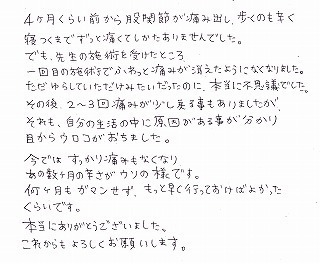 4ヶ月くらい前から股関節が痛み出し、歩くのも辛く
寝つくまでずっと痛くてしかたありませんでした。
でも、先生の施術を受けたところ、
一回目の施術でふわっと痛みが消えたようになくなりました。
ただゆらしていただけみたいだったのに、本当に不思議でした。
その後、2〜3回痛みが少し戻る事もありましたが、
それも、自分の生活の中に原因がある事が分かり
目からウロコがおちました。
今では すっかり痛みもなくなり
あの数ヶ月の辛さがウソの様です。
何ヶ月もガマンせず、もっと早く行っておけばよかった
くらいです。
本当にありがとうございました。
これからもよろしくお願いします。